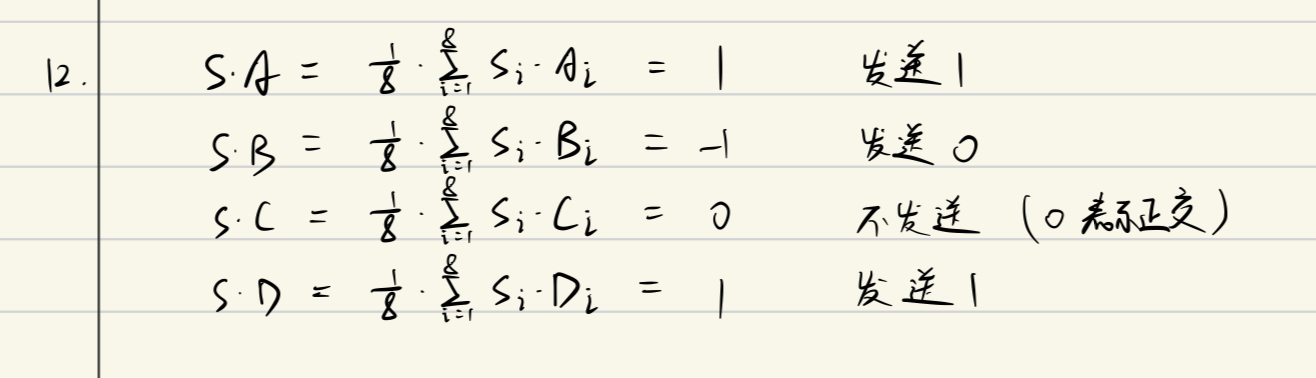 12. S·A = 1/8 · ∑_{i=1}^{8} S_i · A_i = 1 发送 1
S·B = 1/8 · ∑_{i=1}^{8} S_i · B_i = -1 发送 0
S·C = 1/8 · ∑_{i=1}^{8} S_i · C_i = 0 不发送 (0 表示正交)
S·D = 1/8 · ∑_{i=1}^{8} S_i · D_i = 1 发送 1